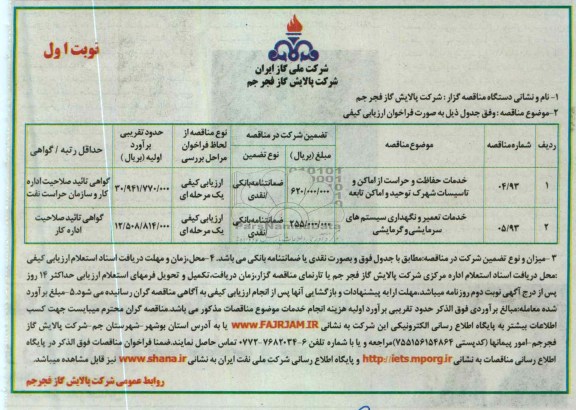 نوبت اول
شرکت ملی گاز ایران
شرکت پالایش گاز فجر جم
۱- نام و نشانی دستگاه مناقصه گزار: شرکت پالایش گاز فجر جم
۲-موضوع مناقصه: وفق جدول ذیل به صورت فراخوان ارزیابی کیفی
ردیف شماره مناقصه موضوع مناقصه تضمین شرکت در مناقصه مبلغ (ریال) نوع تضمین نوع مناقصه از لحاظ فراخوان مراحل بررسی حدود تقریبی برآورد اولیه (بریال) حداقل رتبه / گواهی
۱ ۰۴/۹۳ خدمات حفاظت و حراست از اماکن و تاسیسات شهرک توحید و اماکن تابعه ۶۲۰/۰۰۰/۰۰۰ ضمانتنامه بانکی /نقدی ارزیابی کیفی یک مرحله ای ۳۰/۹۴۱/۷۷۰/۰۰۰ گواهی تائید صلاحیت اداره کار و سازمان حراست نفت
۲ ۰۵/۹۳ خدمات تعمیر و نگهداری سیستم های سرمایشی و گرمایشی ۲۵۵/۰۰۰/۰۰۰ ضمانتنامه بانکی /نقدی ارزیابی کیفی یک مرحله ای ۱۲/۵۰۸/۸۱۴/۰۰۰ گواهی تائید صلاحیت اداره کار
۳ -میزان و نوع تضمین شرکت در مناقصه:مطابق با جدول فوق و بصورت نقدی یا ضمانتنامه بانکی می باشد. ۴-محل،زمان و مهلت دریافت اسناد استعلام ارزیابی کیفی
:محل دریافت اسناد استعلام اداره مرکزی شرکت پالایش گاز فجر جم یا تارنمای مناقصه گزار،زمان دریافت،تکمیل و تحویل فرمهای استعلام ارزیابی حداکثر ۱۴ روز
پس از درج آگهی نوبت دوم روزنامه میباشد،مهلت ارایه پیشنهادات و بازگشایی آنها پس از انجام ارزیابی کیفی به آگاهی مناقصه گران رسانیده می شود.۵-مبلغ برآورد
شده معامله:مبالغ برآوردی فوق الذکر حدود تقریبی برآورد اولیه هزینه انجام خدمات موضوع مناقصات مذکور می باشد.مناقصه گران محترم میبایست جهت کسب
اطلاعات بیشتر به پایگاه اطلاع رسانی الکترونیکی این شرکت به نشانی WWW.FAJRJAM.IR یا به آدرس استان بوشهر-شهرستان جم-شرکت پالایش گاز
فجرجم-امور پیمانها (کدپستی ۷۵۵۱۵۶۱۵۴۸۶۴)مراجعه و یا با شماره تلفن ۶-۷۶۸۲۰۳۴-۰۷۷۲ تماس حاصل نمایند.ضمنا فراخوان مناقصات فوق الذکر در پایگاه
اطلاع رسانی مناقصات به نشانی http://iets.mporg.ir و پایگاه اطلاع رسانی شرکت ملی نفت ایران به نشانی www.shana.ir نیز قابل مشاهده میباشد.
روابط عمومی شرکت پالایش گاز فجر جم